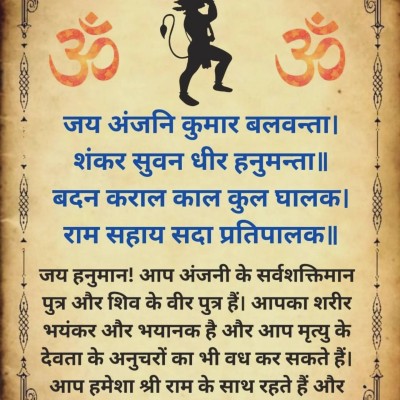 ॐ ॐ
जय अंजनि कुमार बलवन्ता।
शंकर सुवन धीर हनुमन्ता॥
बदन कराल काल कुल घालक।
राम सहाय सदा प्रतिपालक॥
जय हनुमान! आप अंजनी के सर्वशक्तिमान
पुत्र और शिव के वीर पुत्र हैं। आपका शरीर
भयंकर और भयानक है और आप मृत्यु के
देवता के अनुचरों का भी वध कर सकते हैं।
आप हमेशा श्री राम के साथ रहते हैं और